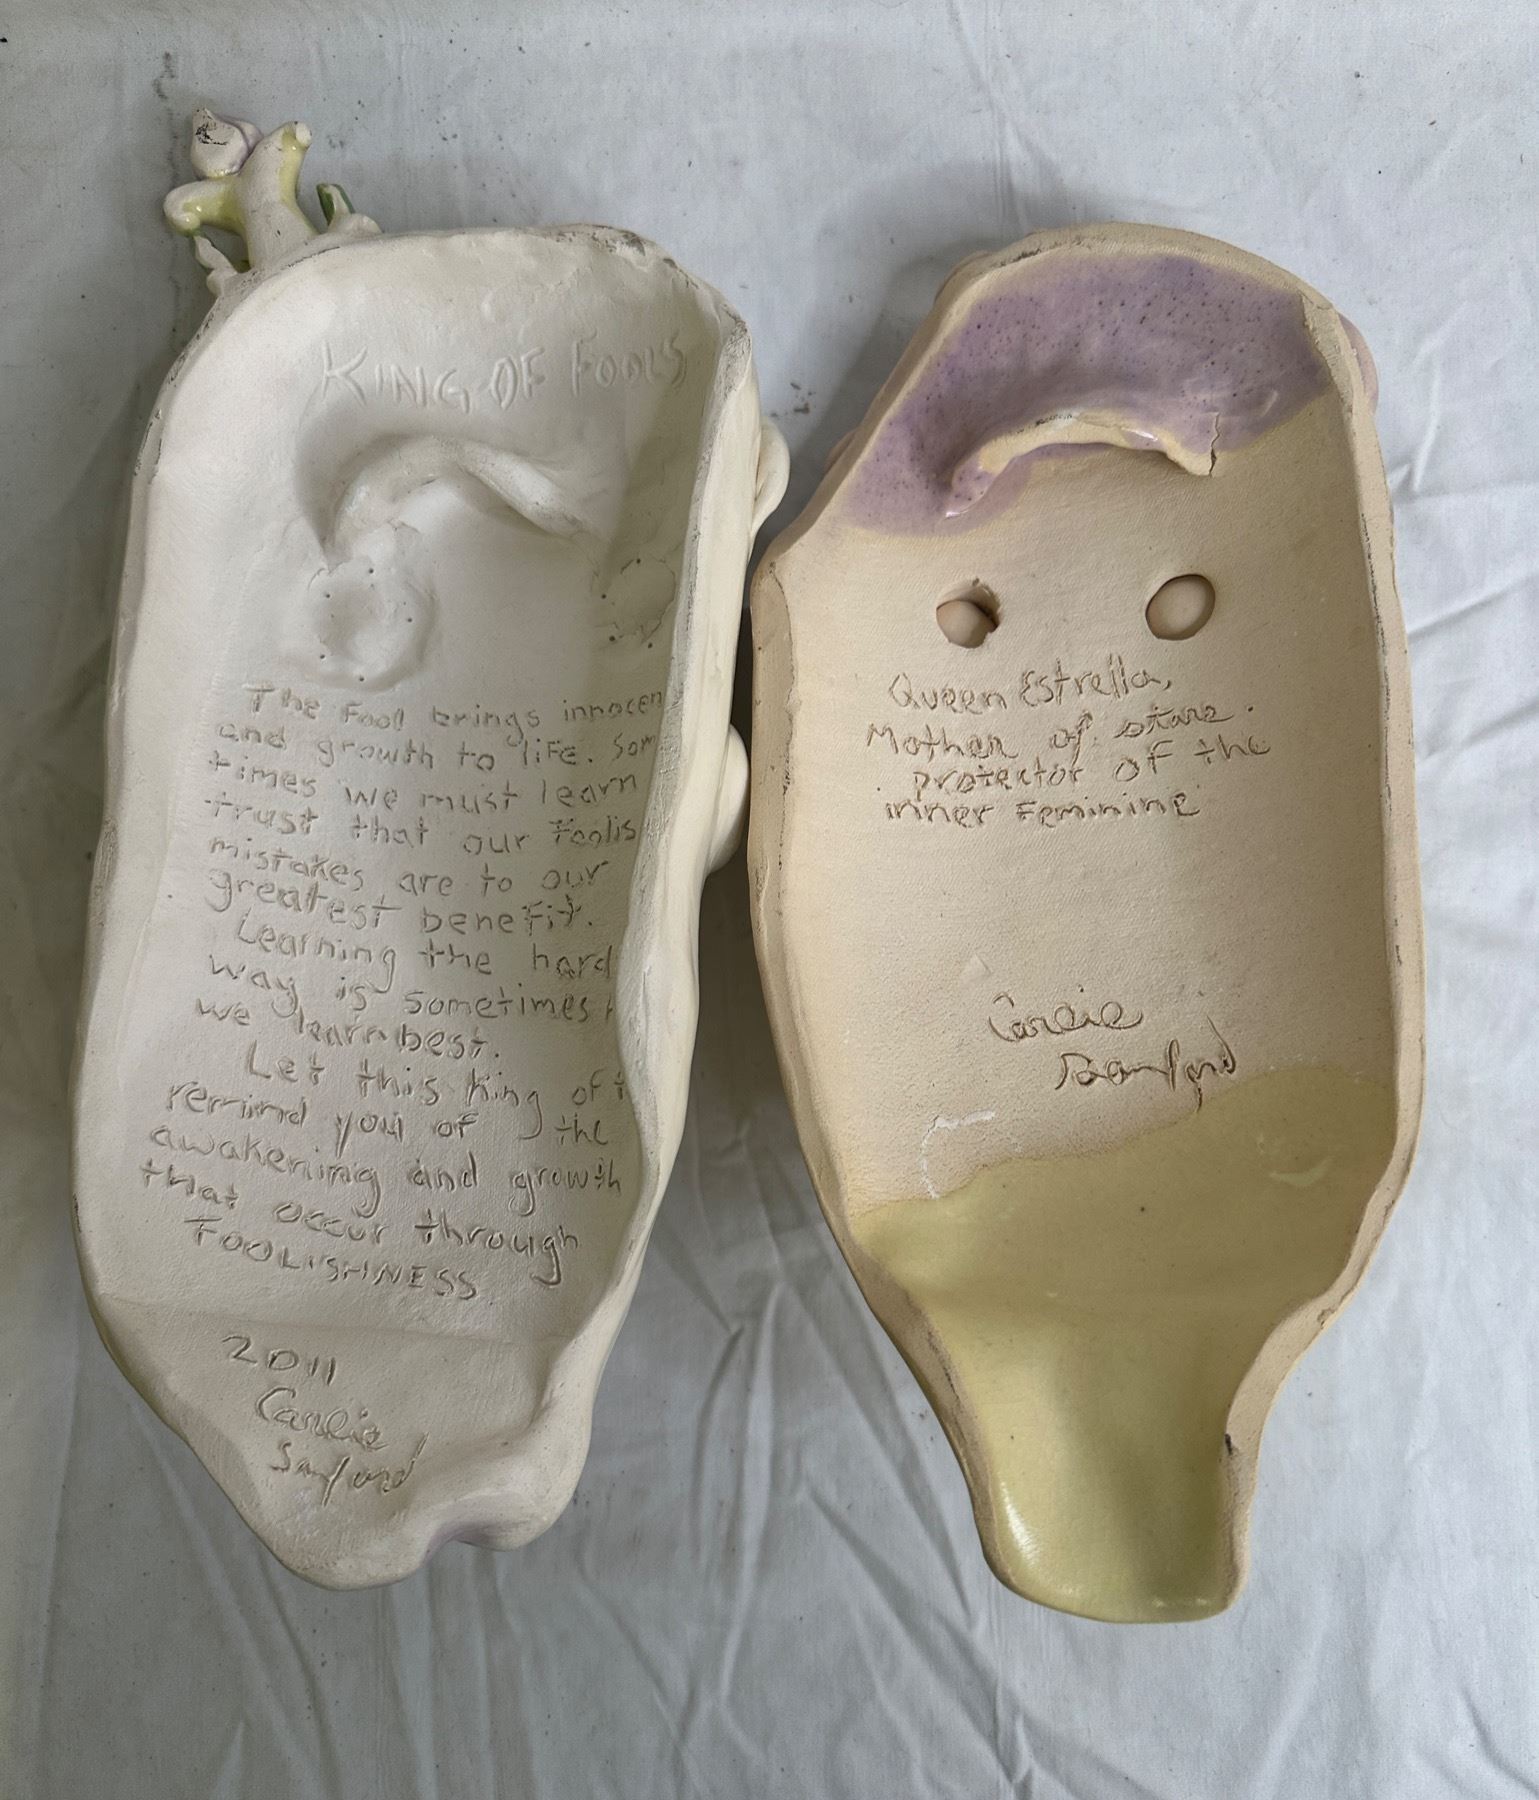 KING OF FOOLS
The Fool brings innocen
and growth to life. Som
times we must learn
trust that our Foolis
mistakes are to our
greatest benefit.
Learning the hard
way is sometimes
we learn best.
Let this King of t
remind you of the
awakening and growth
that occur through
FOOLISHNESS
2011
Sanford
Queen Estrella,
Mother of stars.
protector of the
inner Feminine
Sanford